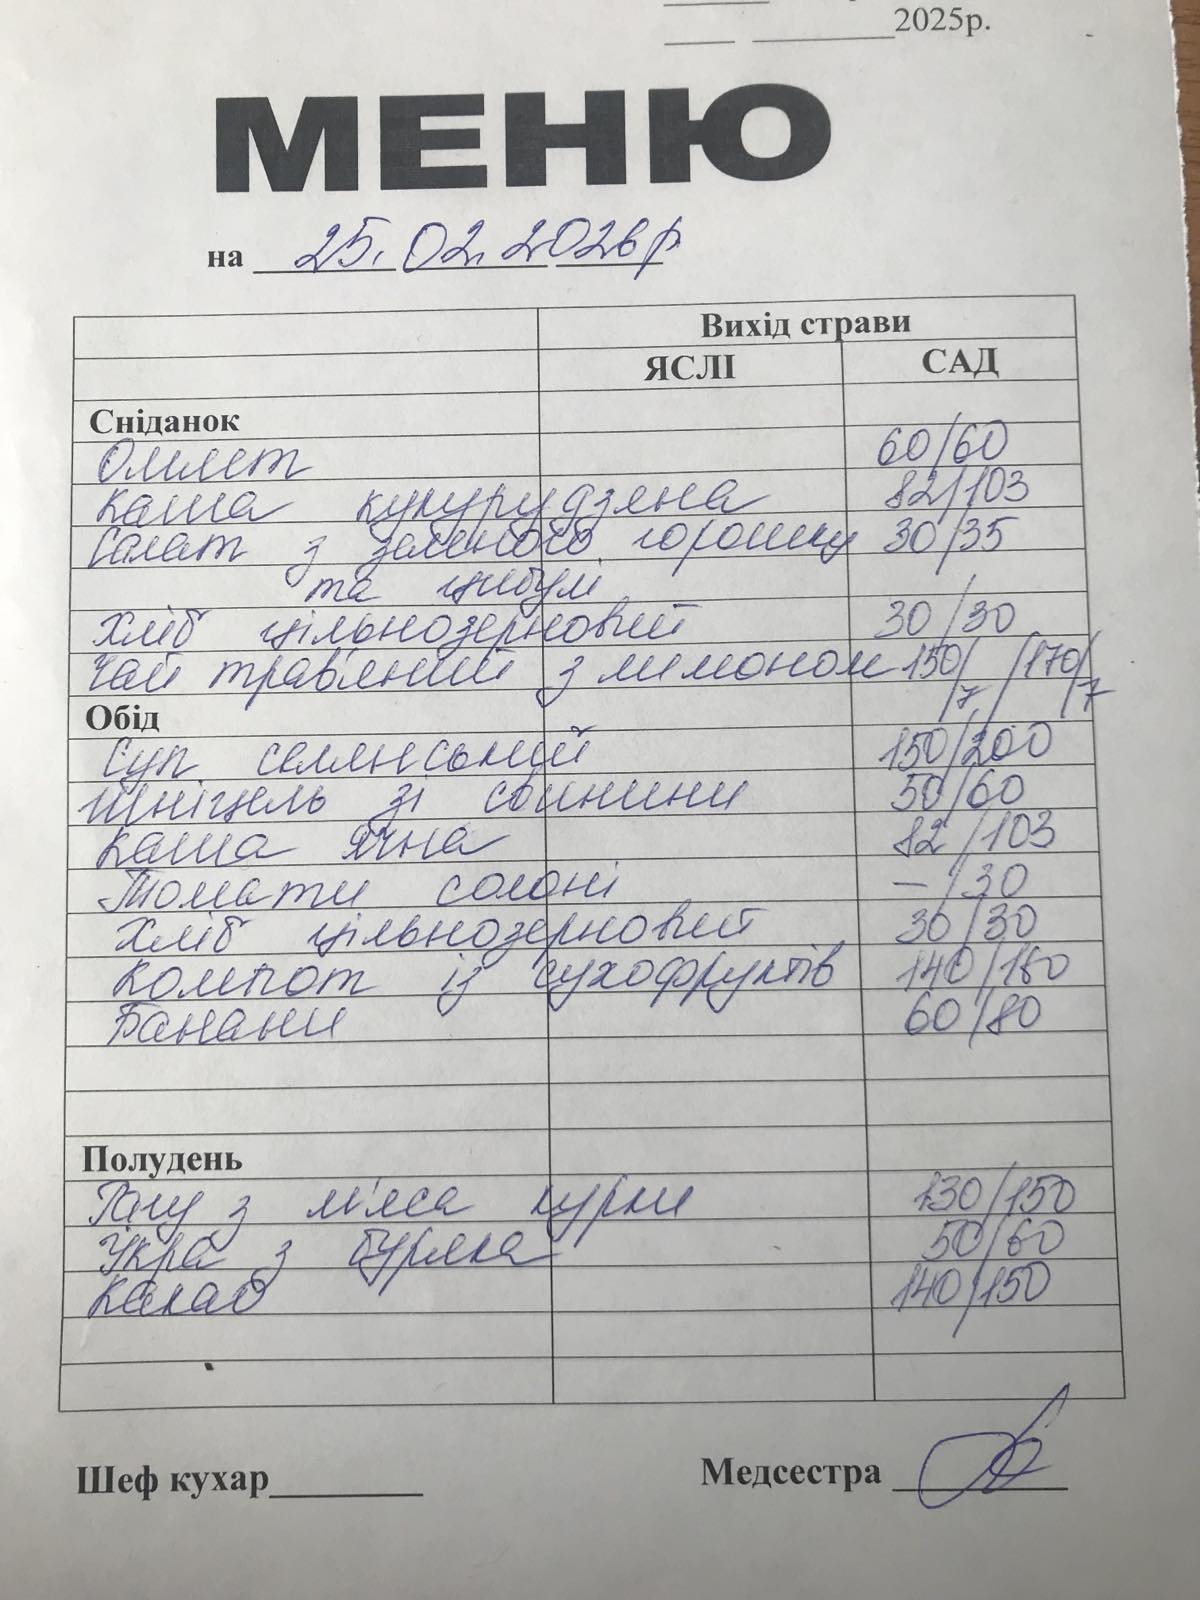 2025р.
МЕНЮ
на 25.02.2026р
Вихід страви
ЯСЛІ САД
Сніданок
Омлет 60/60
Каша кукурудзяна 82/103
Салат з зеленого горошку 30/35
та цибулі
Хліб цільнозерновий 30/30
Чай трав'яний з лимоном 150/7/170/7
Обід
Суп селянський 150/200
Шніцель зі свинини 50/60
Каша ячна 82/103
Томати солоні –/30
Хліб цільнозерновий 30/30
Компот із сухофруктів 140/180
Банани 60/80
Полудень
Рагу з м'яса курки 130/150
Ікра з буряка 50/60
Какао 140/150
Шеф кухар Медсестра